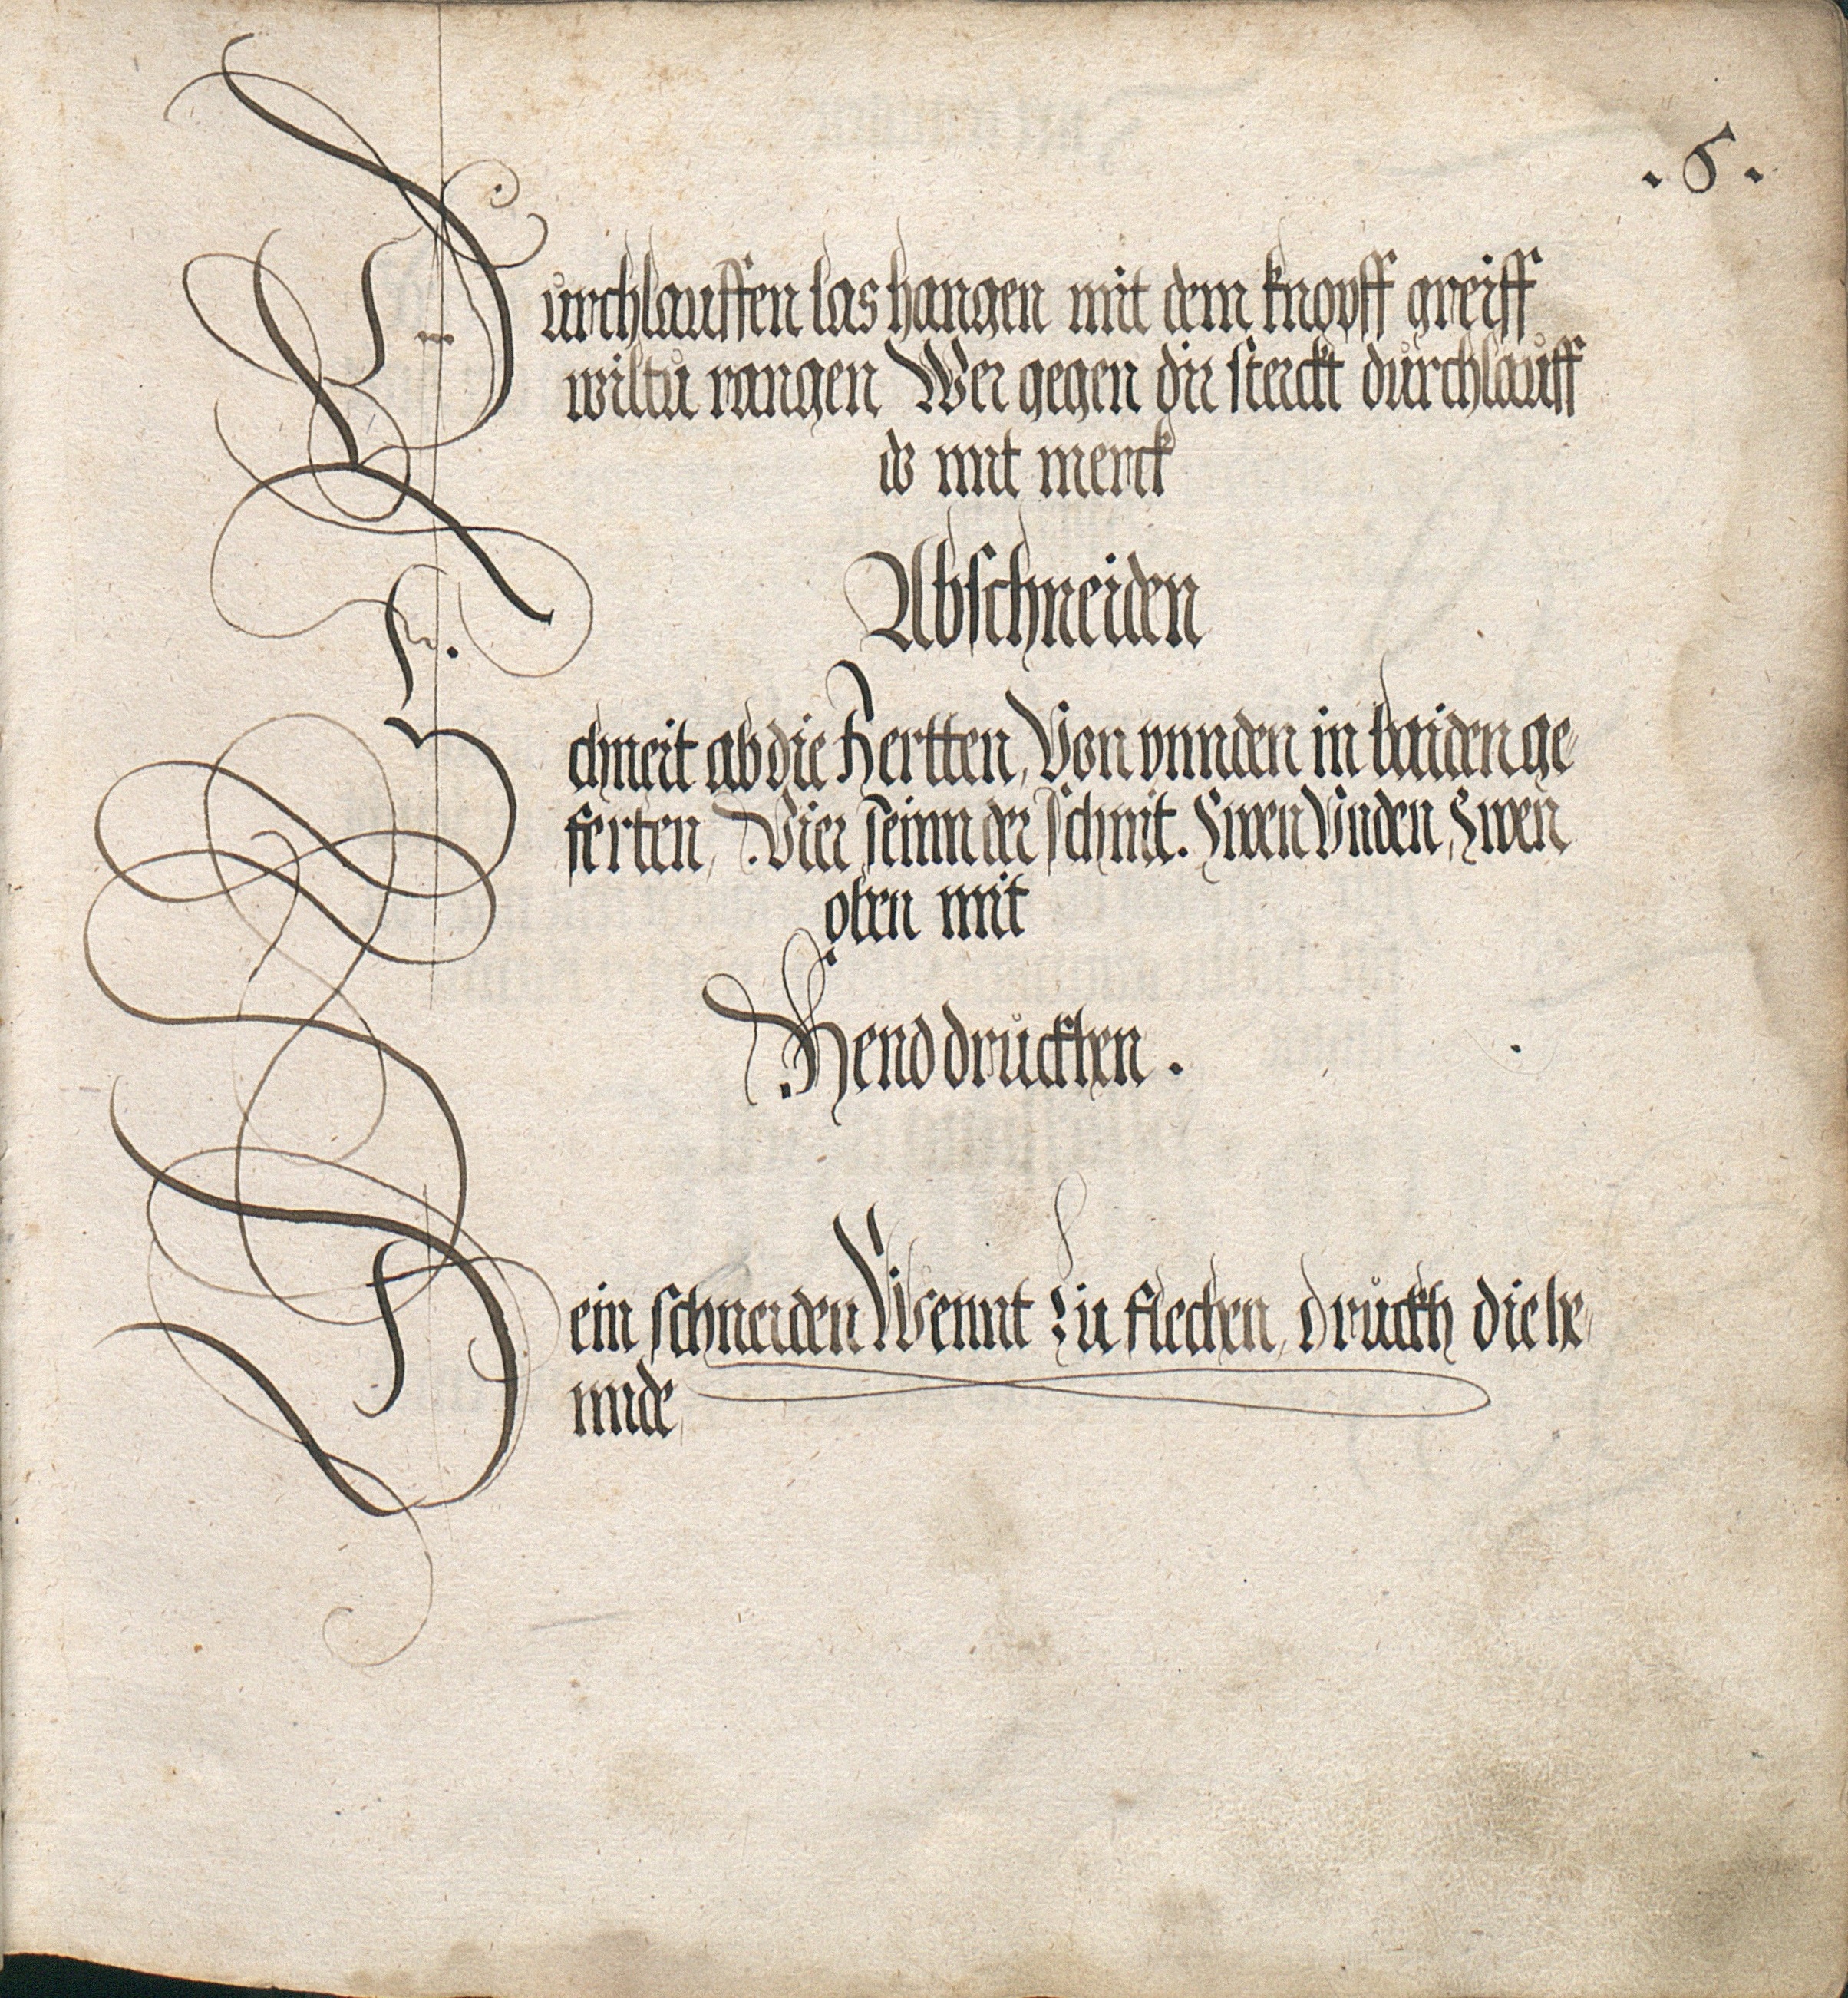 .6.
Durchlauffen las hangen mit dem knopff greiff
wiltů rangen Wer gegen dir sterckt důrchlaůff
do mit merck
Abschneiden
Schneit ab die hertten, Von vnnden in baiden ge,
ferten, Vier seinn der schnit. Zwen Vnden, Zwen
oben mit
Hend drůckhen.
Dein schneiden Wennt Zu flechen, drůckh die he,
nnde,